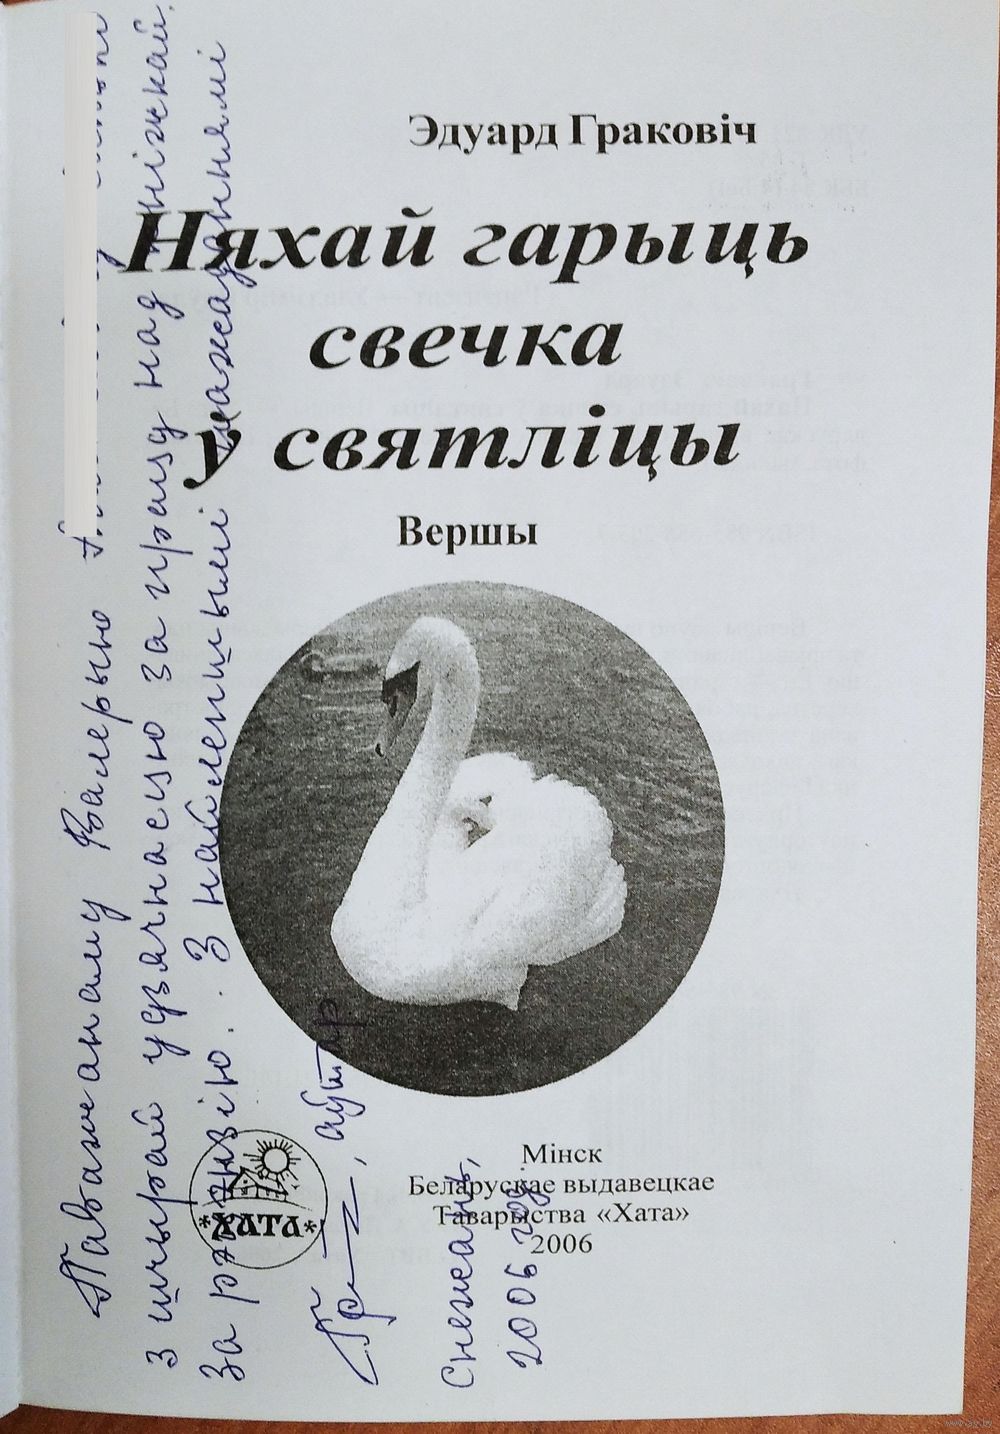 Эдуард Граковіч
Няхай гарыць
свечка
ў святліцы
Вершы
*ХАТА*
Мінск
Беларускае выдавецкае
Таварыства «Хата»
2006
Паважанаму Валерыю
з шчырай удзячнасцю за працу над кніжкай,
за рэцэнзію. З найлепшымі пажаданнямі
, аўтар
Снежань,
2006 год.